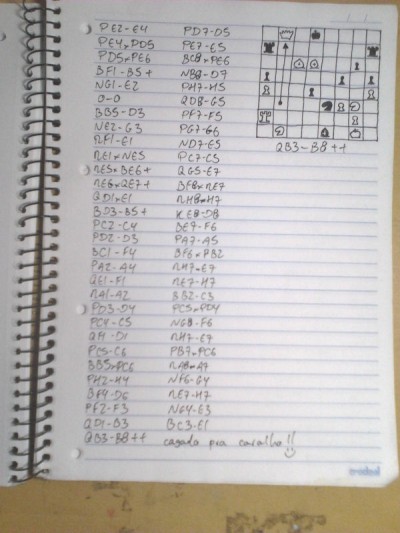 PE2-E4 PD7-D5
PE4xPD5 PE7-E5
PD5xPE6 BC8xPE6
BF1-B5+ NB8-D7
NG1-E2 PH7-H5
0-0 QD8-G5
BB5-D3 PF7-F5
NE2-G3 PG7-G6
RF1-E1 ND7-E5
RE1xNE5 PC7-C5
RE5xBE6+ QG5-E7
RE6xQE7+ BF8xRE7
QD1xE1 RH8xH7
BD3-B5+ KE8-D8
PC2-C4 BE7-F6
PD2-D3 PA7-A5
BC1-F4 BF6xPB2
PA2-A4 RH7-E7
QE1-F1 RE7-H7
RA1-A2 BB2-C3
PD3-D4 PC5xPD4
PC4-C5 NG8-F6
QF1-D1 RH7-E7
PC5-C6 PB7xPC6
BB5xPC6 RA8xA7
PH2-H4 NF6-G4
BF4-D6 RE7-H7
PF2-F3 NG4-E3
QD1-B3 BC3-E1
QB3-B8++ cagada pra caralho!!
QB3-B8++